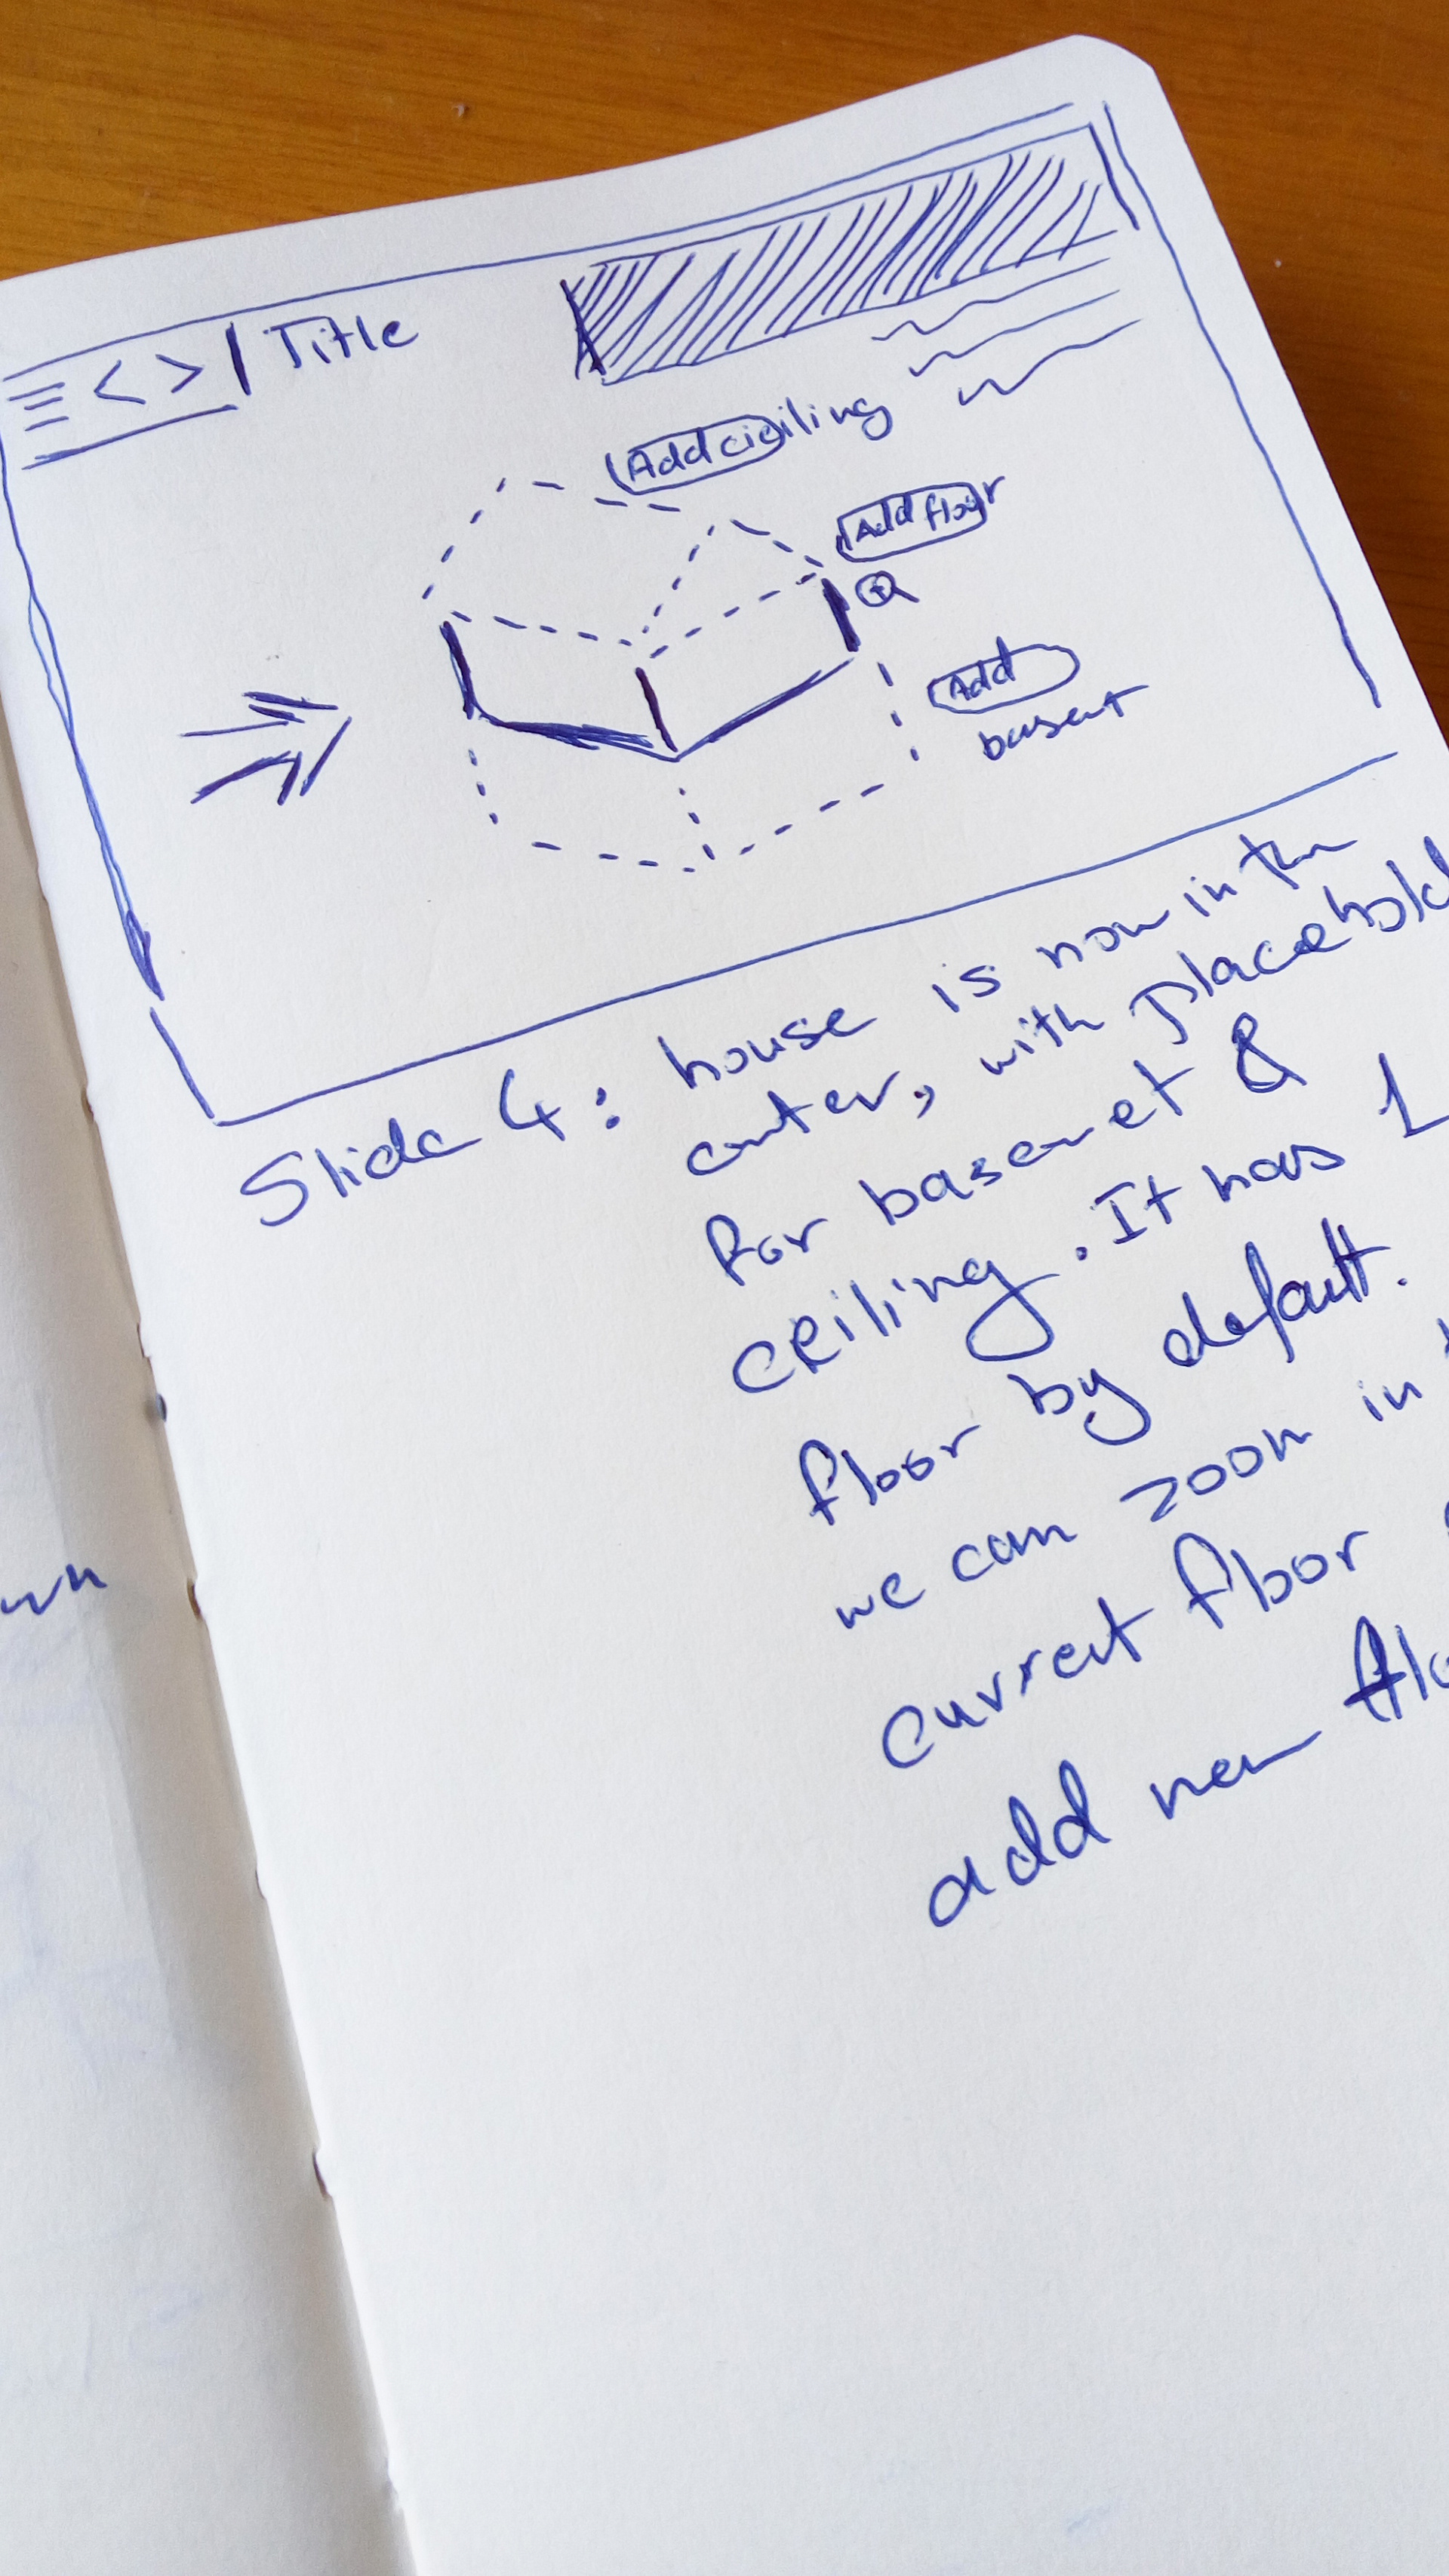 < > | Title
Add ciciling
Add floor
Add
basent
Slide 4: house is now in the
center, with placehold
for basemet &
ceiling. It has 1
floor by default.
we can zoom in
current floor
add new flo
wn